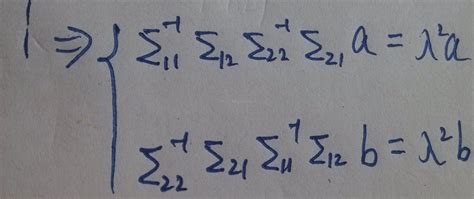 ⇒ { Σ₁₁⁻¹ Σ₁₂ Σ₂₂⁻¹ Σ₂₁ a = λ²a
Σ₂₂⁻¹ Σ₂₁ Σ₁₁⁻¹ Σ₁₂ b = λ²b